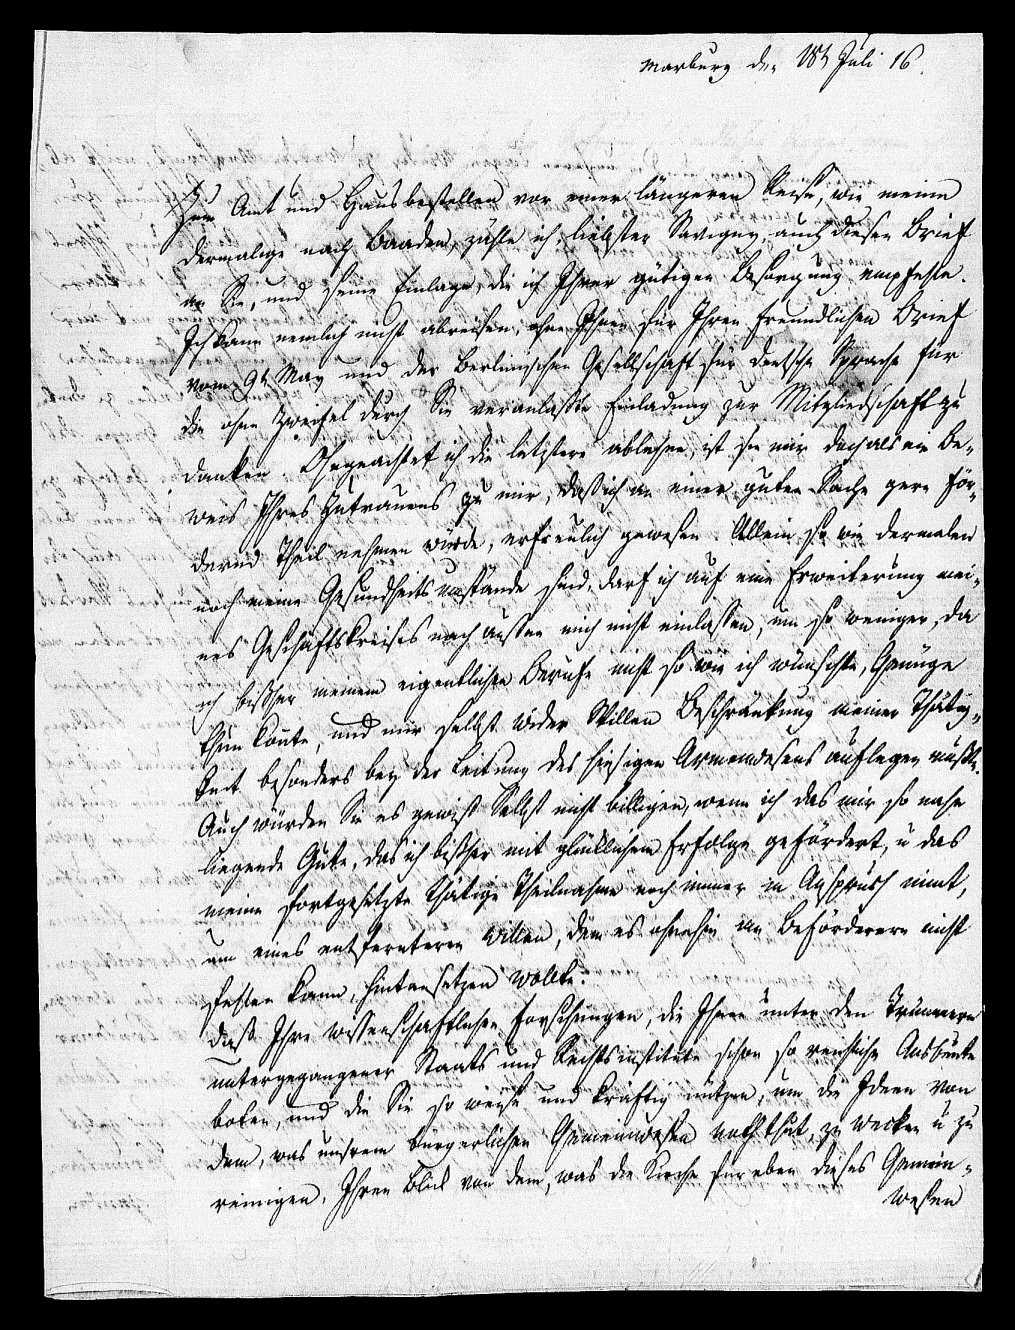 Marburg den 18t Juli 16.
Zum Amt und Hausbestellen vor einer längeren Reise, wie meine
dermalige nach Baaden, zähle ich, liebster Savigny, auch diesen Brief
an Sie, und seine Einlage, die ich Ihrer gütigen Besorgung empfehle.
Ich kann nemlich nicht abreisen, ohne Ihnen für Ihren freundlichen Brief
vom 9t May und der Berlinischen Gesellschaft für deutsche Sprache für
die ohne Zweifel durch Sie veranlaßte Einladung zur Mitgliedschaft zu
danken. Ohngeachtet ich die letztere ablehne, ist sie mir doch als ein Be-
weis Ihres Zutrauens zu mir, daß ich an einer guten Sache gern för-
dernd Theil nehmen würde, erfreulich gewesen. Allein so wie dermalen
noch meine Gesundheitsumstände sind, darf ich auf eine Erweiterung mei-
nes Geschäftskreises nach aussen mich nicht einlassen, um so weniger, da
ich bißher meinem eigentlichen Berufe nicht so wie ich wünschte, Genüge
thun konte, und mir selbst wider Willen Beschränkung meiner Thätig-
keit besonders bey der Leitung des hiesigen Armenwesens auflegen mußte.
Auch würden Sie es gewiß Selbst nicht billigen, wenn ich das mir so nahe
liegende Gute, das ich bißher mit glücklichem Erfolge gefördert, u das
meine fortgesetzte thätige Theilnahme noch immer in Anspruch nimt,
um eines entfernteren willen, dem es ohnehin an Beförderern nicht
fehlen kann, hintansetzen wollte.
Daß Ihre wissenschaftlichen Forschungen, die Ihnen unter den Trümmern
untergegangener Staats und Rechtsinstitute schon so reichliche Ausbeute
boten, und die Sie so weise und kräftig nützen, um die Ideen von
dem, was unsrem bürgerlichen Gemeinwesen noth thut, zu wecken u zu
reinigen, Ihren Blick von dem, was die Kirche für eben dieses Gemein-
wesen